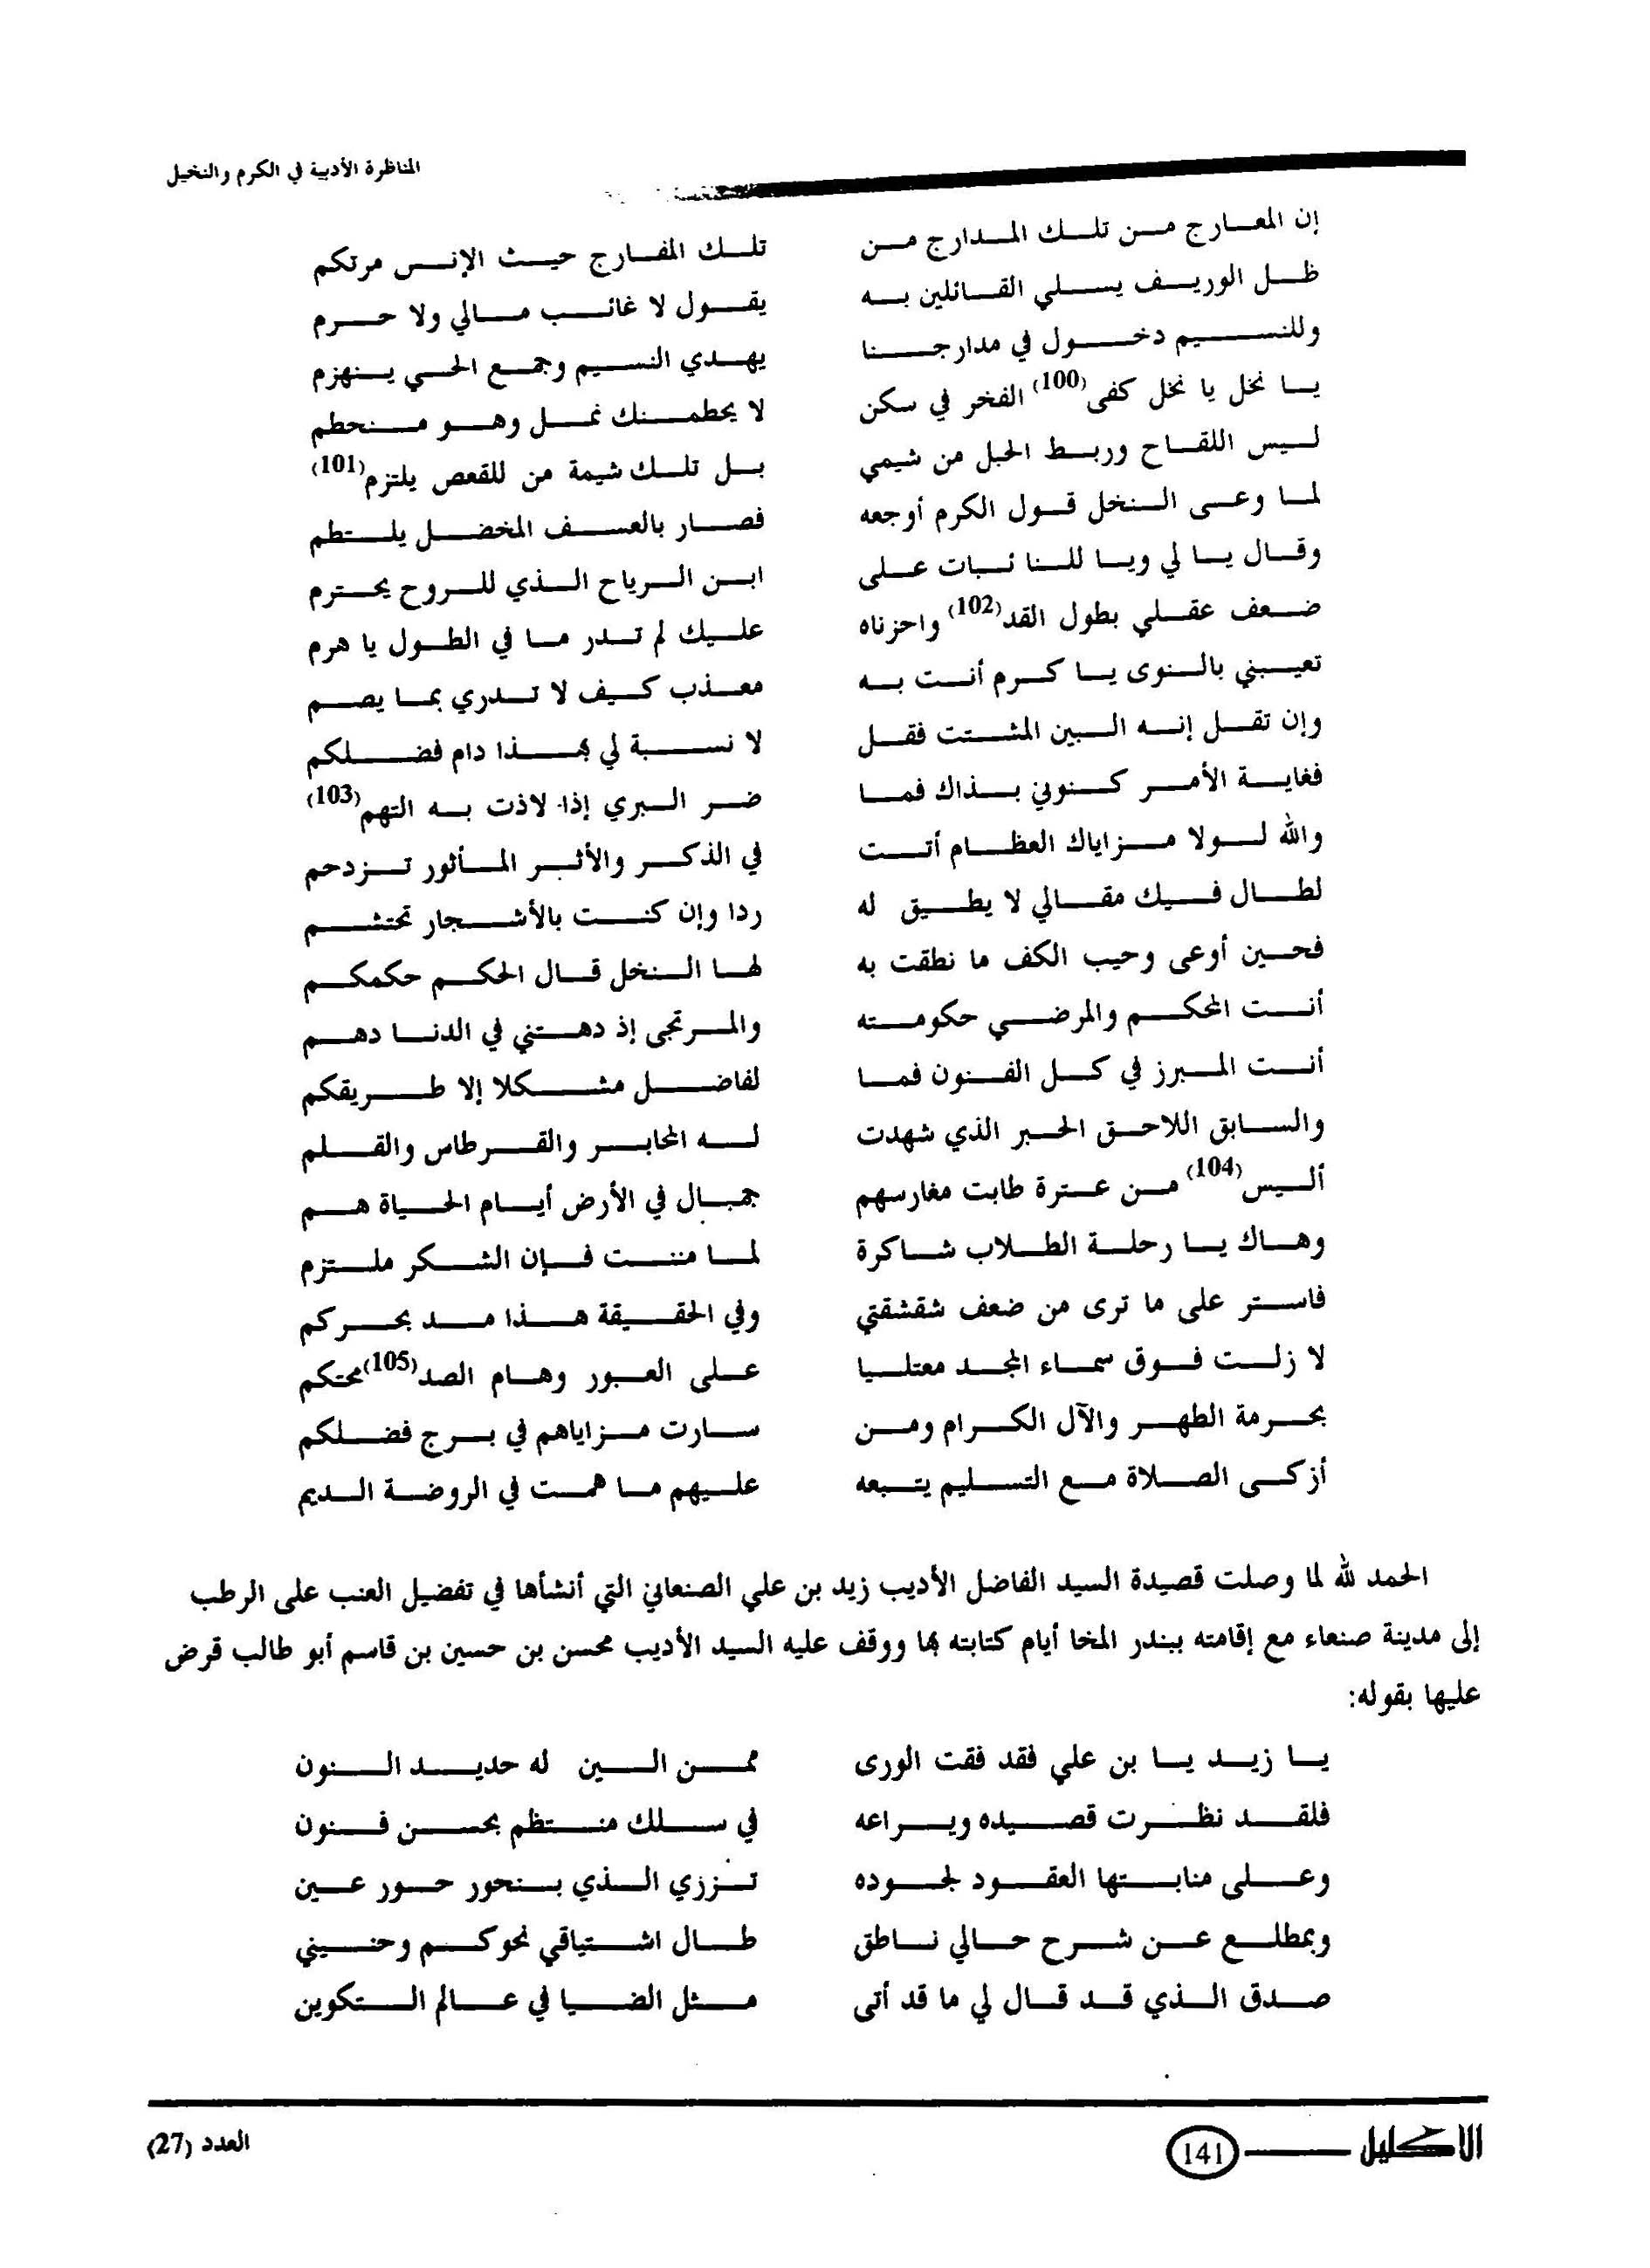 المناظرة الأدبية في الكرم والنخيل
إن المعارج من تلك المدارج من تلك المفارج حيث الإنس مرتكم
ظل الوريف يسلي القائلين به يقول لا غائب مالي ولا حرم
وللنسيم دخول في مدارجنا يهدي النسيم وجمع الحي ينهزم
يا نخل يا نخل كفى(100) الفخر في سكن لا يحطمنك نمل وهو منحطم
ليس اللقاح وربط الحبل من شيمي بل تلك شيمة من للقعص يلتزم(101)
لما وعى النخل قول الكرم أوجعه فصار بالعسف المخضل يلتطم
وقال يا لي ويا للنائبات على ابن الرياح الذي للروح يحترم
ضعف عقلي بطول القد(102) واحزناه عليك لم تدر ما في الطول يا هرم
تعيبني بالنوى يا كرم أنت به معذب كيف لا تدري بما يصم
وإن تقل إنه البين المشتت فقل لا نسبة لي بهذا دام فضلكم
فغاية الأمر كنوني بذاك فما ضر البري إذا لاذت به التهم(103)
والله لولا مزاياك العظام أتت في الذكر والأثر المأثور تزدحم
لطال فيك مقالي لا يطيق له ردا وإن كنت بالأشجار تحتشم
فحين أوعى وحيب الكف ما نطقت به لها النخل قال الحكم حكمكم
أنت المحكم والمرضي حكومته والمرتجى إذ دهتني في الدنا دهم
أنت المبرز في كل الفنون فما لفاضل مشكلا إلا طريقكم
والسابق اللاحق الحبر الذي شهدت له المحابر والقرطاس والقلم
أليس(104) من عترة طابت مغارسهم جمال في الأرض أيام الحياة هم
وهاك يا رحلة الطلاب شاكرة لما مننت فإن الشكر ملتزم
فاستر على ما ترى من ضعف شقشقتي وفي الحقيقة هذا مد بحركم
لا زلت فوق سماء المجد معتليا على العبور وهام الصد(105) محتكم
بحرمة الطهر والآل الكرام ومن سارت مزاياهم في برج فضلكم
أزكى الصلاة مع التسليم يتبعه عليهم ما همت في الروضة الديم
الحمد لله لما وصلت قصيدة السيد الفاضل الأديب زيد بن علي الصنعاني التي أنشأها في تفضيل العنب على الرطب
إلى مدينة صنعاء مع إقامته ببندر المخا أيام كتابته بها ووقف عليه السيد الأديب محسن بن حسين بن قاسم أبو طالب قرض
عليها بقوله:
يا زيد يا بن علي فقد فقت الورى ممن الين له حديد النون
فلقد نظرت قصيده ويراعه في سلك منتظم بحسن فنون
وعلى منابتها العقود لجوده تزري الذي بنحور حور عين
وبمطلع عن شرح حالي ناطق طال اشتياقي نحوكم وحنيني
صدق الذي قد قال لي ما قد أتى مثل الضيا في عالم التكوين
الاكليل 141 العدد (27)